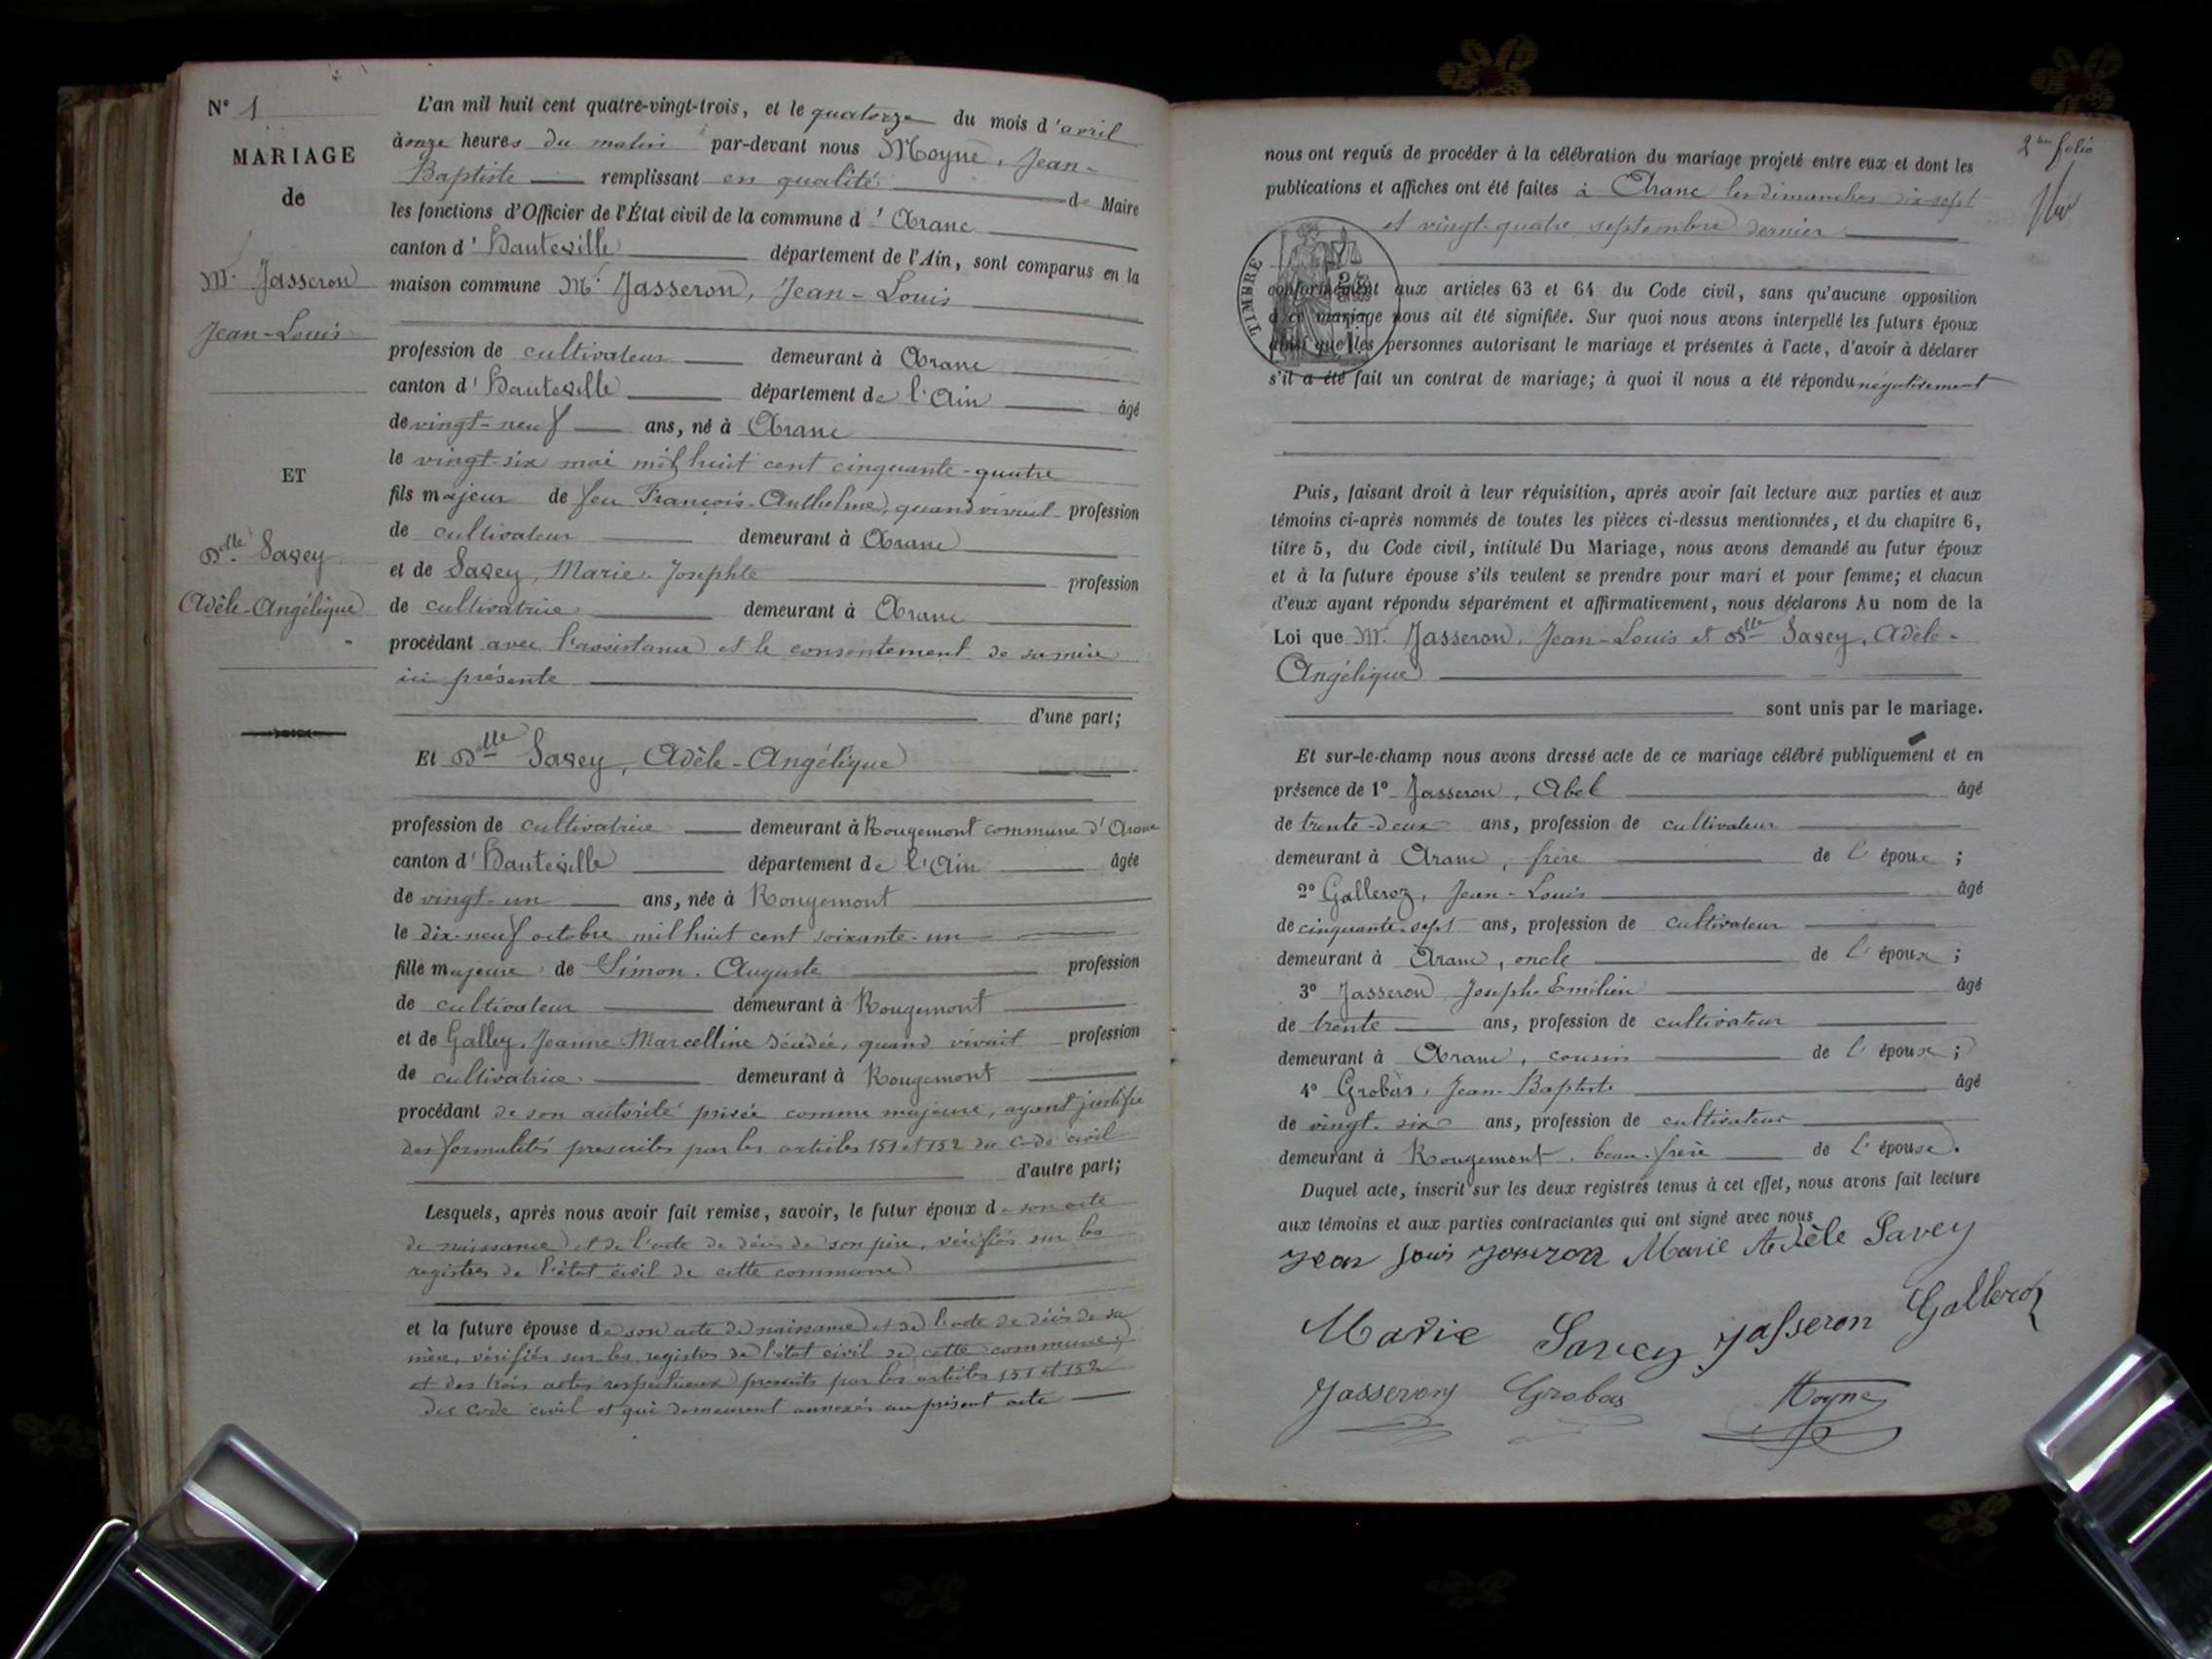 N° 1
MARIAGE
de
Mr. Jasseron
Jean-Louis
ET
Delle Savey
Adèle-Angélique
L'an mil huit cent quatre-vingt-trois, et le quatorze du mois d'avril
à onze heures du matin par-devant nous Moyne, Jean-
Baptiste remplissant en qualité de Maire
les fonctions d'Officier de l'État civil de la commune d'Aranc
canton d'Hauteville département de l'Ain, sont comparus en la
maison commune Mr. Jasseron, Jean-Louis
profession de cultivateur demeurant à Aranc
canton d'Hauteville département de l'Ain âgé
de vingt-neuf ans, né à Aranc
le vingt-six mai mil huit cent cinquante-quatre
fils majeur de feu François-Anthelme, quand vivait profession
de cultivateur demeurant à Aranc
et de Savey, Marie-Josephte profession
de cultivatrice demeurant à Aranc
procédant avec l'assistance et le consentement de sa mère
ici présente
d'une part;
Et Delle Savey, Adèle-Angélique
profession de cultivatrice demeurant à Rougemont commune d'Aranc
canton d'Hauteville département de l'Ain âgée
de vingt-un ans, née à Rougemont
le dix-neuf octobre mil huit cent soixante-un
fille majeure de Simon-Auguste profession
de cultivateur demeurant à Rougemont
et de Galley, Jeanne-Marcelline décédée, quand vivait profession
de cultivatrice demeurant à Rougemont
procédant de son autorité privée comme majeure, ayant justifié
des formalités prescrites par les articles 151 et 152 du Code civil
d'autre part;
Lesquels, après nous avoir fait remise, savoir, le futur époux de son acte
de naissance et de l'acte de décès de son père, vérifiés sur les
registres de l'état civil de cette commune
et la future épouse de son acte de naissance et de l'acte de décès de sa
mère, vérifiés sur les registres de l'état civil de cette commune;
et des trois actes respectueux prescrits par les articles 151 et 152
du Code civil et qui demeurent annexés au présent acte
2me folio
nous ont requis de procéder à la célébration du mariage projeté entre eux et dont les
publications et affiches ont été faites à Aranc les dimanches dix-sept
et vingt-quatre septembre dernier
TIMBRE
conformément aux articles 63 et 64 du Code civil, sans qu'aucune opposition
à ce mariage nous ait été signifiée. Sur quoi nous avons interpellé les futurs époux
ainsi que les personnes autorisant le mariage et présentes à l'acte, d'avoir à déclarer
s'il a été fait un contrat de mariage; à quoi il nous a été répondu négativement
Puis, faisant droit à leur réquisition, après avoir fait lecture aux parties et aux
témoins ci-après nommés de toutes les pièces ci-dessus mentionnées, et du chapitre 6,
titre 5, du Code civil, intitulé Du Mariage, nous avons demandé au futur époux
et à la future épouse s'ils veulent se prendre pour mari et pour femme; et chacun
d'eux ayant répondu séparément et affirmativement, nous déclarons Au nom de la
Loi que Mr. Jasseron, Jean-Louis et Delle Savey, Adèle-
Angélique
sont unis par le mariage.
Et sur-le-champ nous avons dressé acte de ce mariage célébré publiquement et en
présence de 1° Jasseron, Abel âgé
de trente-deux ans, profession de cultivateur
demeurant à Aranc, frère de l'époux;
2° Galleroz, Jean-Louis âgé
de cinquante-sept ans, profession de cultivateur
demeurant à Aranc, oncle de l'époux;
3° Jasseron Joseph-Emilien âgé
de trente ans, profession de cultivateur
demeurant à Aranc, cousin de l'époux;
4° Grobas, Jean-Baptiste âgé
de vingt-six ans, profession de cultivateur
demeurant à Rougemont, beau-frère de l'épouse.
Duquel acte, inscrit sur les deux registres tenus à cet effet, nous avons fait lecture
aux témoins et aux parties contractantes qui ont signé avec nous
Jean Louis Jasseron Marie Adèle Savey
Marie Savey Jasseron Galleroz
Jasseron Grobas Moyne